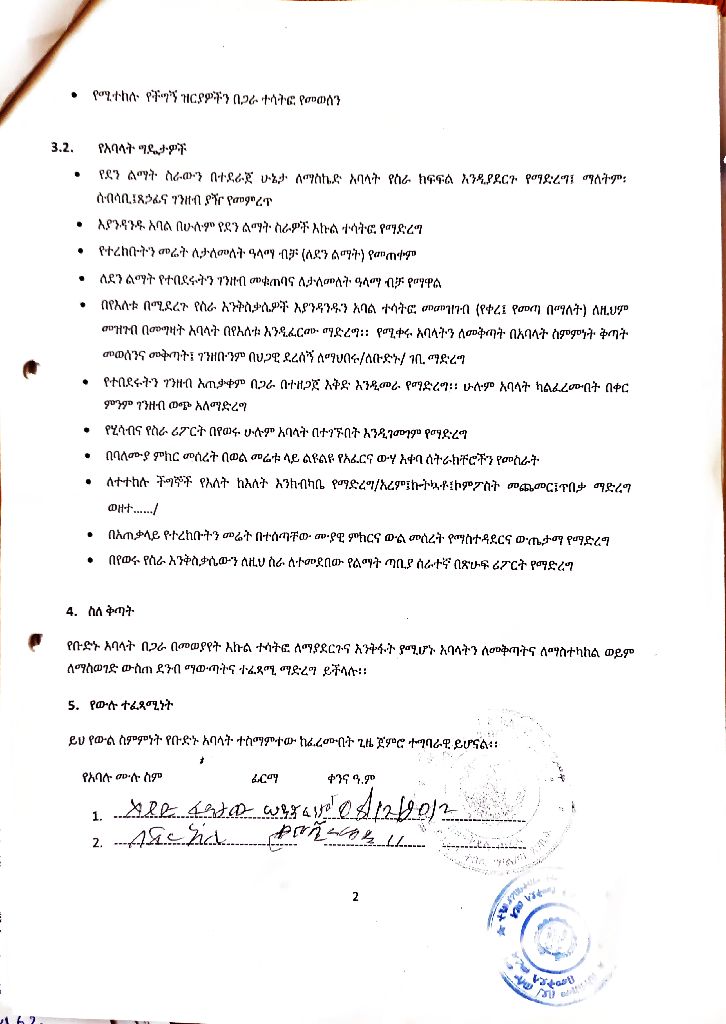 • የሚተከሉ የችግኝ ዝርያዎችን በጋራ ተሳትፎ የመወሰን
3.2. የአባላት ግዴታዎች
• የደን ልማት ስራውን በተደራጀ ሁኔታ ለማስኬድ አባላት የስራ ክፍፍል እንዲያደርጉ የማድረግ፤ ማለትም፡
ሰብሳቢ፤ጸኃፊና ገንዘብ ያዥ የመምረጥ
• እያንዳንዱ አባል በሁሉም የደን ልማት ስራዎች እኩል ተሳትፎ የማድረግ
• የተረከቡትን መሬት ለታለመለት ዓላማ ብቻ (ለደን ልማት) የመጠቀም
• ለደን ልማት የተበደሩትን ገንዘብ መቁጠባና ለታለመለት ዓላማ ብቻ የማዋል
• በየእለቱ በሚደረጉ የስራ እንቅስቃሴዎች እያንዳንዱን አባል ተሳትፎ መመዝገብ (የቀረ፤ የመጣ በማለት) ለዚህም
መዝገብ በመግዛት አባላት በየእለቱ እንዲፈርሙ ማድረግ፡፡ የሚቀሩ አባላትን ለመቅጣት በአባላት ስምምነት ቅጣት
መወሰንና መቅጣት፤ ገንዘቡንም በህጋዊ ደረሰኝ ለማህበሩ/ለቡድኑ/ ገቢ ማድረግ
• የተበደሩትን ገንዘብ አጠቃቀም በጋራ በተዘጋጀ እቅድ እንዲመራ የማድረግ፡፡ ሁሉም አባላት ካልፈረሙበት በቀር
ምንም ገንዘብ ወጭ አለማድረግ
• የሂሳብና የስራ ሪፖርት በየወሩ ሁሉም አባላት በተገኙበት እንዲገመገም የማድረግ
• በባለሙያ ምክር መሰረት በወል መሬቱ ላይ ልዩልዩ የአፈርና ውሃ እቀባ ስትራክቸሮችን የመስራት
• ለተተከሉ ችግኞች የእለት ከእለት እንክብካቤ የማድረግ/አረም፤ኩትኳቶ፤ኮምፖስት መጨመር፤ጥበቃ ማድረግ
ወዘተ....../
• በአጠቃላይ የተረከቡትን መሬት በተሰጣቸው ሙያዊ ምክርና ውል መሰረት የማስተዳደርና ውጤታማ የማድረግ
• በየወሩ የስራ እንቅስቃሴውን ለዚህ ስራ ለተመደበው የልማት ጣቢያ ሰራተኛ በጽሁፍ ሪፖርት የማድረግ
4. ስለ ቅጣት
የቡድኑ አባላት በጋራ በመወያየት እኩል ተሳትፎ ለማያደርጉና እንቅፋት የሚሆኑ አባላትን ለመቅጣትና ለማስተካከል ወይም
ለማስወገድ ውስጠ ደንብ ማውጣትና ተፈጻሚ ማድረግ ይችላሉ፡፡
5. የውሉ ተፈጻሚነት
ይህ የውል ስምምነት የቡድኑ አባላት ተስማምተው ከፈረሙበት ጊዜ ጀምሮ ተግባራዊ ይሆናል፡፡
የአባሉ ሙሉ ስም ፊርማ ቀንና ዓ.ም
1.
2. "
2